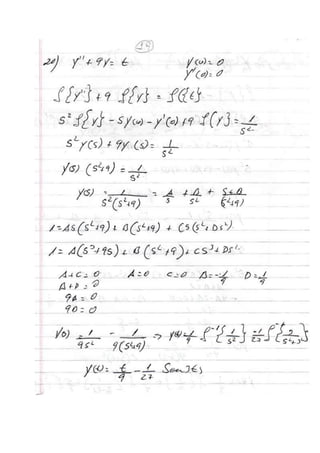 20) y'' + 9y = t    y(0) = 0
y'(0) = 0
ℒ{y''} + 9 ℒ{y} = ℒ{t}
s² ℒ{y} - sy(0) - y'(0) + 9 ℒ{y} = 1/s²
s² y(s) + 9y(s) = 1/s²
y(s) (s²+9) = 1/s²
y(s) = 1/(s²(s²+9)) = A/s + B/s² +
1 = AS(s²+9) + B(s²+9) +
1 = A(s³+9s) + B(s²+9) + Cs³ + Ds²
A+C = 0    A = 0    C = 0    B = 1/9    D = -1/9
B+D = 0
9A = 0
9B = 0
y(s) = 1/(9s²) - 1/(9(s²+9)) ⇒ y(t) = 1/9 ℒ⁻¹{1/s²}
y(t) = t/9 - 1/27 Sen3t